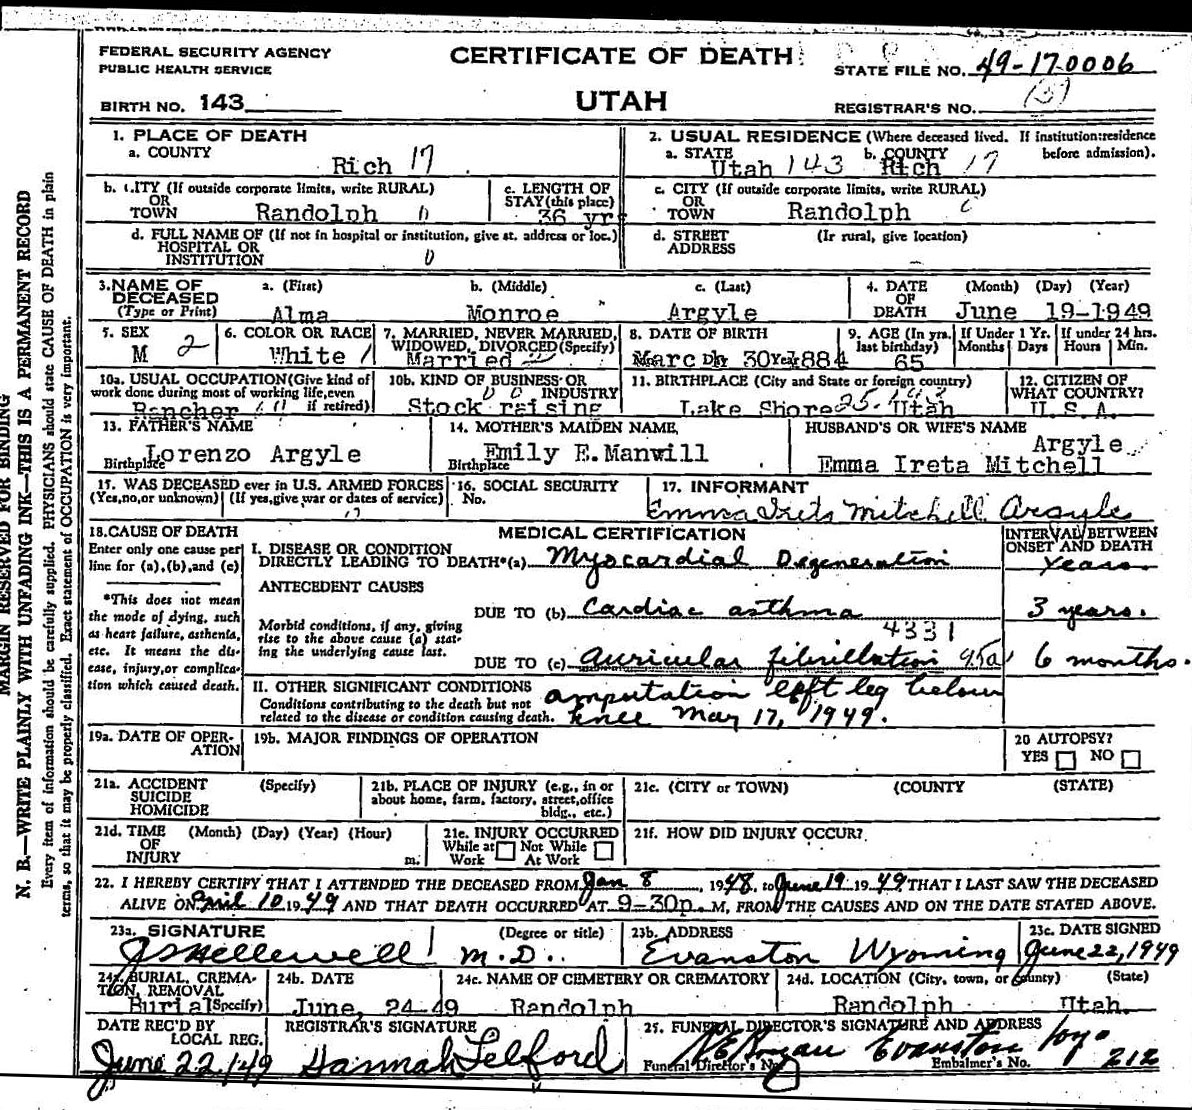 FEDERAL SECURITY AGENCY
PUBLIC HEALTH SERVICE
CERTIFICATE OF DEATH
STATE FILE NO. 49-170006
BIRTH NO. 143
UTAH
REGISTRAR'S NO.
1. PLACE OF DEATH
a. COUNTY
Rich 17
2. USUAL RESIDENCE (Where deceased lived. If institution:residence before admission).
a. STATE
Utah 143
b. COUNTY
Rich 17
b. CITY (If outside corporate limits, write RURAL)
OR
TOWN Randolph
c. LENGTH OF
STAY(this place)
36 yrs
c. CITY (If outside corporate limits, write RURAL)
OR
TOWN Randolph
d. FULL NAME OF (If not in hospital or institution, give st. address or loc.)
HOSPITAL OR
INSTITUTION 0
d. STREET (If rural, give location)
ADDRESS
3.NAME OF
DECEASED
(Type or Print)
a. (First)
Alma
b. (Middle)
Monroe
c. (Last)
Argyle
4. DATE
OF
DEATH
(Month) (Day) (Year)
June 19-1949
5. SEX
M 2
6. COLOR OR RACE
White 1
7. MARRIED, NEVER MARRIED,
WIDOWED, DIVORCED(Specify)
Married
8. DATE OF BIRTH
March 30 1884
9. AGE (In yrs.
last birthday)
65
If Under 1 Yr.
Months Days
If under 24 hrs.
Hours Min.
10a. USUAL OCCUPATION(Give kind of
work done during most of working life,even
if retired)
Rancher
10b. KIND OF BUSINESS OR
INDUSTRY
Stock raising
11. BIRTHPLACE (City and State or foreign country)
Lake Shore Utah
12. CITIZEN OF
WHAT COUNTRY?
U.S.A.
13. FATHER'S NAME
Lorenzo Argyle
Birthplace
14. MOTHER'S MAIDEN NAME
Emily E.Manwill
Birthplace
HUSBAND'S OR WIFE'S NAME
Argyle
Emma Ireta Mitchell
15. WAS DECEASED ever in U.S. ARMED FORCES
(Yes,no,or unknown) (If yes,give war or dates of service)
16. SOCIAL SECURITY
No.
17. INFORMANT
Emma Ireta Mitchell Argyle
18.CAUSE OF DEATH
Enter only one cause per
line for (a),(b),and (c)
*This does not mean
the mode of dying, such
as heart failure, asthenia,
etc. It means the dis-
ease, injury,or complica-
tion which caused death.
MEDICAL CERTIFICATION
INTERVAL BETWEEN
ONSET AND DEATH
I. DISEASE OR CONDITION
DIRECTLY LEADING TO DEATH*(a) Myocardial Degeneration
years
ANTECEDENT CAUSES
DUE TO (b) Cardiac asthma
3 years.
Morbid conditions, if any, giving
rise to the above cause (a) stat-
ing the underlying cause last.
4331
DUE TO (c) auricular fibrillation 95a
6 months.
II. OTHER SIGNIFICANT CONDITIONS
Conditions contributing to the death but not
related to the disease or condition causing death.
amputation left leg below
knee May 17, 1949.
19a. DATE OF OPER-
ATION
19b. MAJOR FINDINGS OF OPERATION
20 AUTOPSY?
YES NO
21a. ACCIDENT (Specify)
SUICIDE
HOMICIDE
21b. PLACE OF INJURY (e.g., in or
about home, farm, factory, street,office
bldg., etc.)
21c. (CITY or TOWN) (COUNTY) (STATE)
21d. TIME (Month) (Day) (Year) (Hour)
OF
INJURY m.
21e. INJURY OCCURRED
While at Not While
Work At Work
21f. HOW DID INJURY OCCUR?
22. I HEREBY CERTIFY THAT I ATTENDED THE DECEASED FROM Jan 8, 1948, to June 19 1949 THAT I LAST SAW THE DECEASED
ALIVE ON April 10 1949 AND THAT DEATH OCCURRED AT 9-30p. M, FROM THE CAUSES AND ON THE DATE STATED ABOVE.
23a. SIGNATURE (Degree or title)
JS Hellewell M.D.
23b. ADDRESS
Evanston Wyoming
23c. DATE SIGNED
June 22, 1949
24a. BURIAL, CREMA-
TION, REMOVAL
Burial (Specify)
24b. DATE
June, 24-49
24c. NAME OF CEMETERY OR CREMATORY
Randolph
24d. LOCATION (City, town, or county) (State)
Randolph Utah.
DATE REC'D BY
LOCAL REG.
June 22, 1949
REGISTRAR'S SIGNATURE
Hannah Telford
25. FUNERAL DIRECTOR'S SIGNATURE AND ADDRESS
Evanston Wyo
Funeral Director's No.
Embalmer's No. 212
MARGIN RESERVED FOR BINDING
N. B.—WRITE PLAINLY WITH UNFADING INK—THIS IS A PERMANENT RECORD
Every item of information should be carefully supplied. PHYSICIANS should state CAUSE OF DEATH in plain
terms, so that it may be properly classified. Exact statement of OCCUPATION is very important.